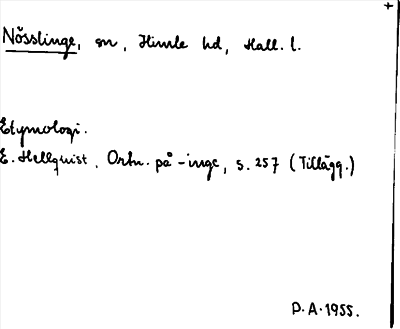 +
Nösslinge, sn, Himle hd, Hall. l.
Etymologi.
E. Hellquist. Ortn. på -inge, s. 257 (Tillägg.)
D.A. 1955.